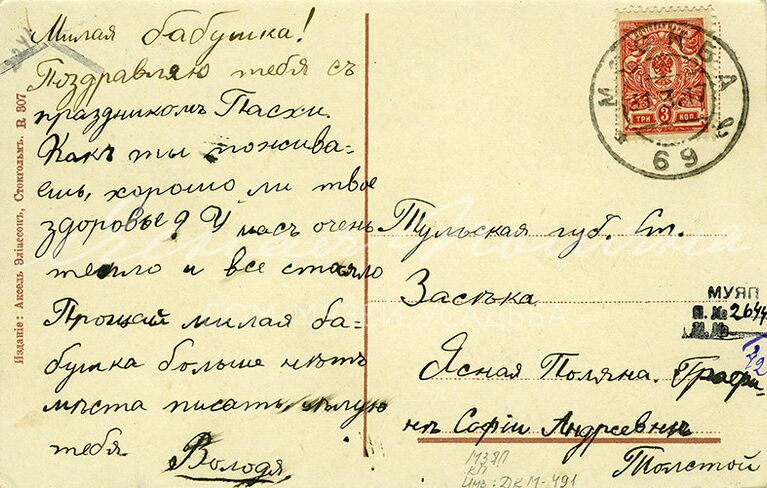 Милая бабушка!
Поздравляю тебя съ
праздникомъ Пасхи.
Какъ ты пожива-
ешь, хорошо ли твое
здоровье? У насъ очень
тепло и все стаяло
Прощай милая ба-
бушка больше нѣтъ
мѣста писать, цѣлую
тебя.
Володя
Изданіе: Аксель Эліассонъ, Стокгольмъ. R 307
МОСКВА
69
ТРИ 3 КОП.
Тульская губ. Ст.
Засѣка.
Ясная Поляна. Графи-
нѣ Софіи Андреевнѣ
Толстой
МУЯП
П. № 2644
М. №
/72
МЗЯП
КП
Инв: ДКМ-491
МУЗЕЙ УСАДЬБА